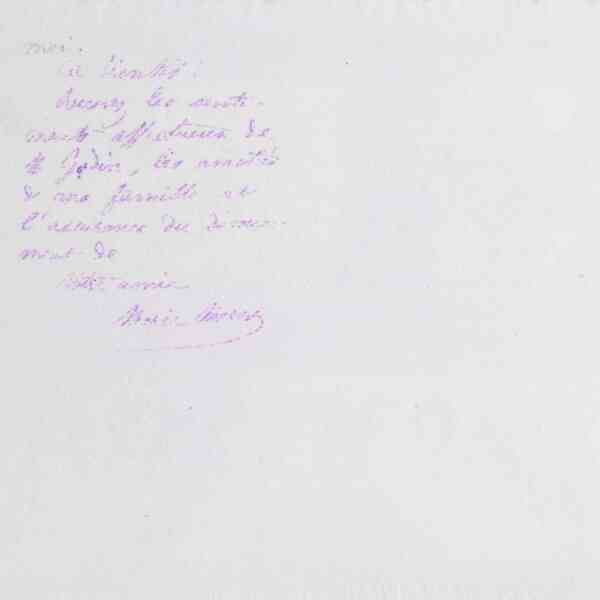 moi.
A bientôt !
Recevez les senti-
ments affectueux de
M Godin, les amitiés
de ma famille et
l'assurance du dévoue-
ment de
Votre amie
Marie Moret